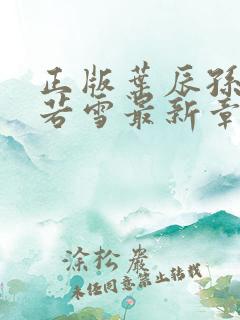 正版叶辰孙
若雪最新章
涂松岩
未经同意禁止转载